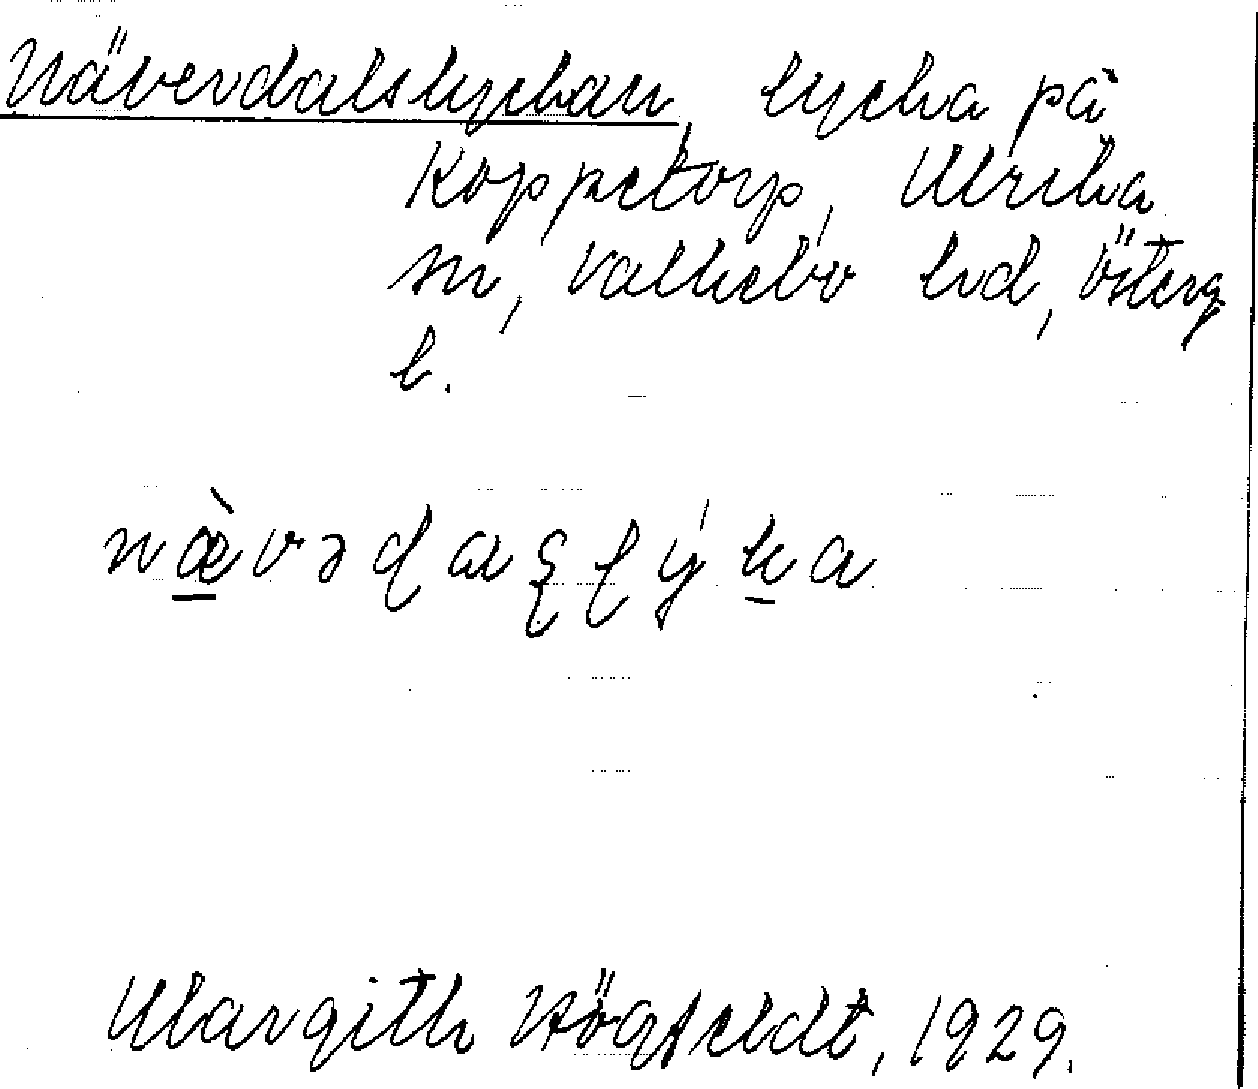 Näverdalslyckan, lycka på
Koppetorp, Ulrika
sn, Valkebo hd, Österg
l.
nǽvədaʂlýka
Margith Högfeldt, 1929.